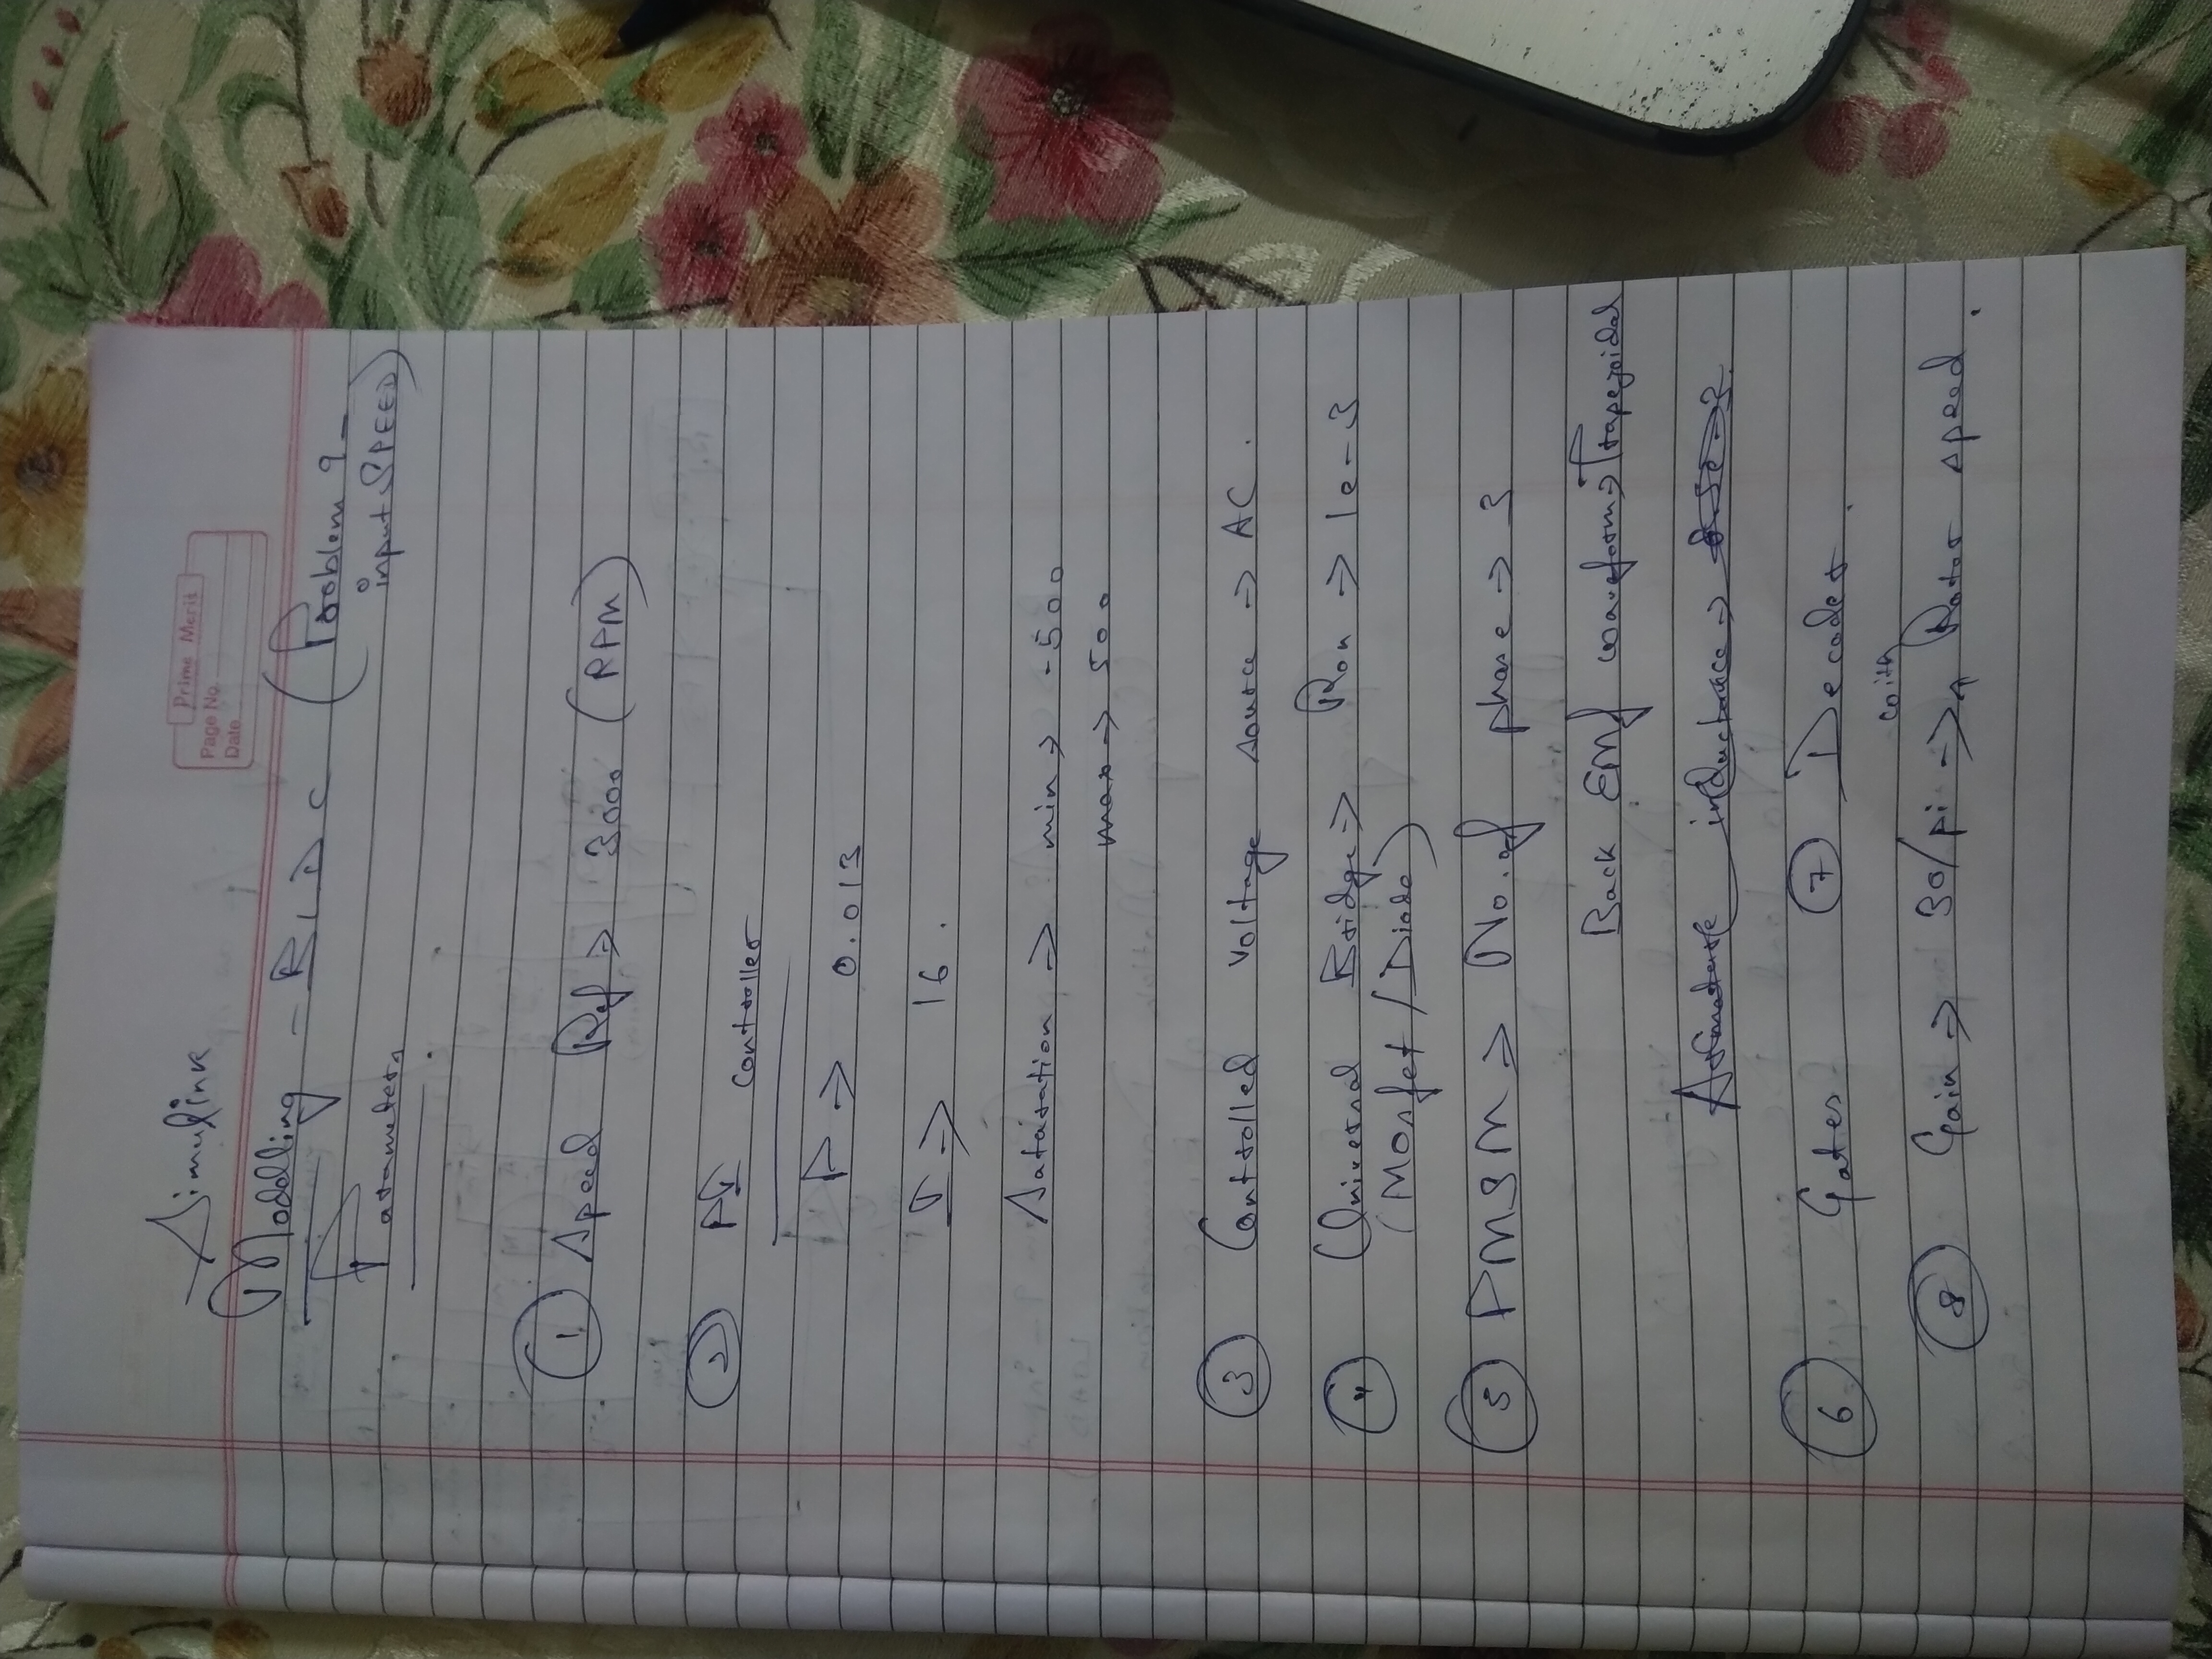 Simulink
Prime Merit
Page No.
Date
Modelling - BLDC (Problem 9 -
input SPEED)
Parameters
1 Speed Ref => 3000 (RPM)
2 PI controller
P => 0.013
I => 16.
Saturation => min → -500
max → 500
3 Controlled voltage source → AC.
4 Universal Bridge => Ron → 1e-3
(Mosfet/Diode)
5 PMSM => No. of phase → 3
Back EMf waveform → Trapezoidal
Armature inductance →
6 Gates 7 Decoder.
with
8 Gain → 30/pi → Rotor speed.